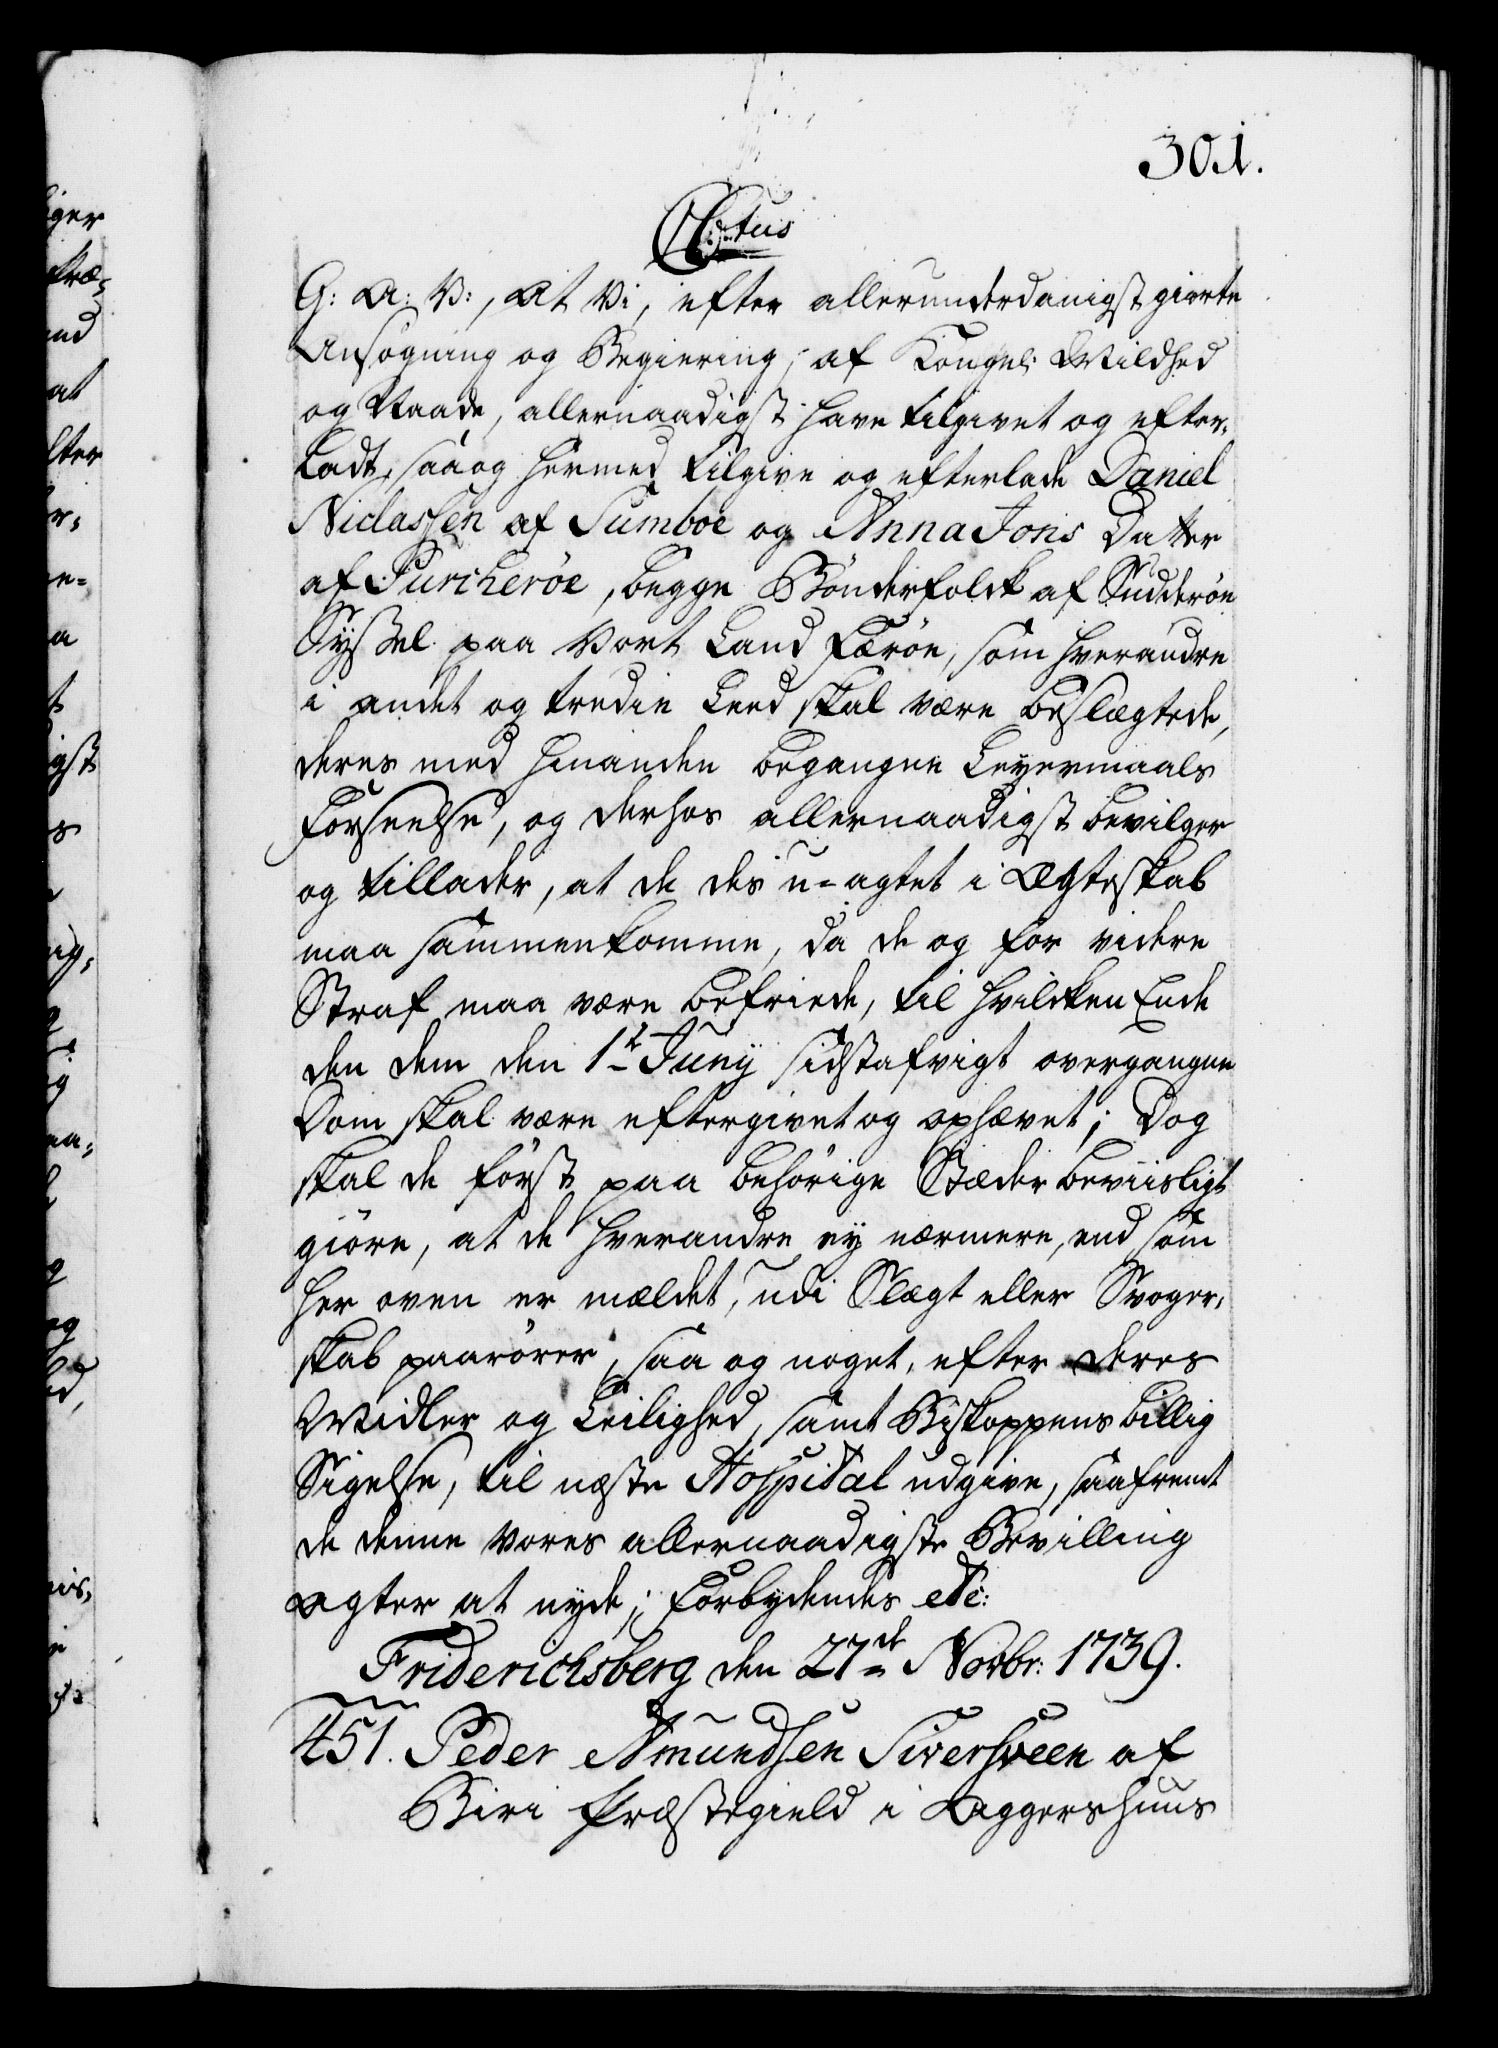 301.
Ctus
G: A: V:, At Vi, efter allerunderdanigst giorte
Ansøgning og Begiering, af Kongel: Mildhed
og Naade, allernaadigst have tilgivet og efter,
ladt, saa og hermed tilgive og efterlade Daniel
Niclassen af Sumboe og Anna Jons Datter
af Purcherøe, begge Bønderfolck af Sudderøe
Syssel paa Vort Land Færøe, som hverandre
i andet og tredie Leed skal være beslægtede,
deres med hinanden begangne Leyermaals
Forseelse, og derhos allernaadigst bevilger
og tillader, at de des u-agtet i Ægteskab
maa sammenkomme, da de og for videre
Straf maa være befriede, til hvilcken Ende
den dem den 1t Junij sidstafvigt overgangne
Dom skal være eftergivet og ophævet; Dog
skal de først paa behørige Stæder beviisligt
giøre, at de hverandre ey nærmere, end som
her oven er mældet, udi Slægt eller Svoger,
skab paarører, saa og noget, efter deres
Midler og Leilighed, samt Biskoppens billig
Sigelse, til næste Hospital udgive, saafremt
de denne Vores allernaadigste Bevilling
agter at nyde; Forbydendes etc:
Friderichsberg den 27de Novbr: 1739.
451. Peder Amundsen Siversveen af
Biri Præstegield i Aggershuus
iger
træ,
end
at
a
igst
s